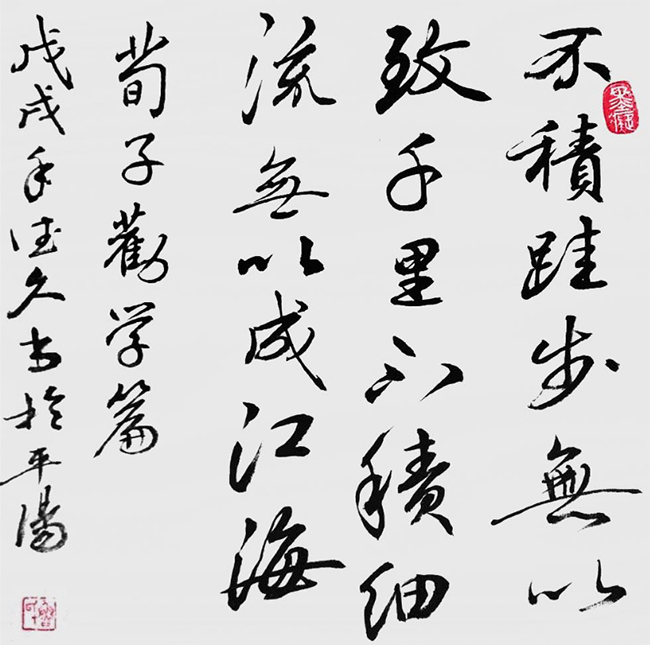 不積跬步無以
致千里不積细
流無以成江海
荀子勸学篇
戊戌年法久书於平陽